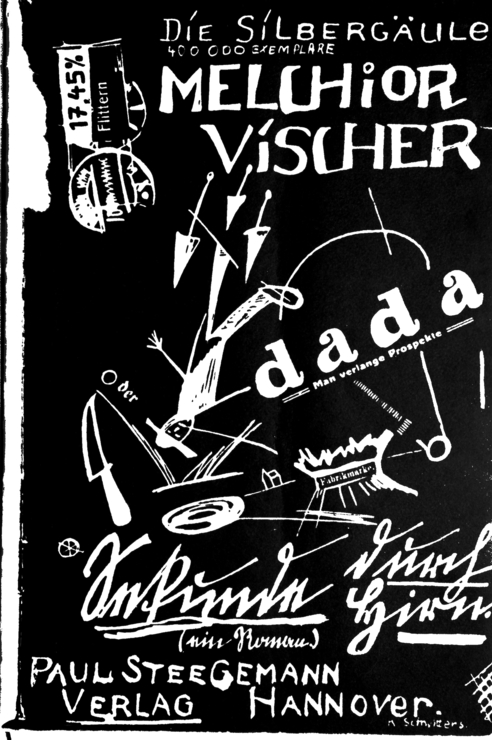 DiE SiLBERGÄULE
400 000 EXEMPLARE
MELCHiOR
ViSCHER
17.45%
Flittern
dada
Man verlange Prospekte
der
Fabrikmarke.
Sekunde durch
Hirn.
(ein Roman)
PAUL STEEGEMANN
VERLAG HANNOVER.
K. Schwitters.